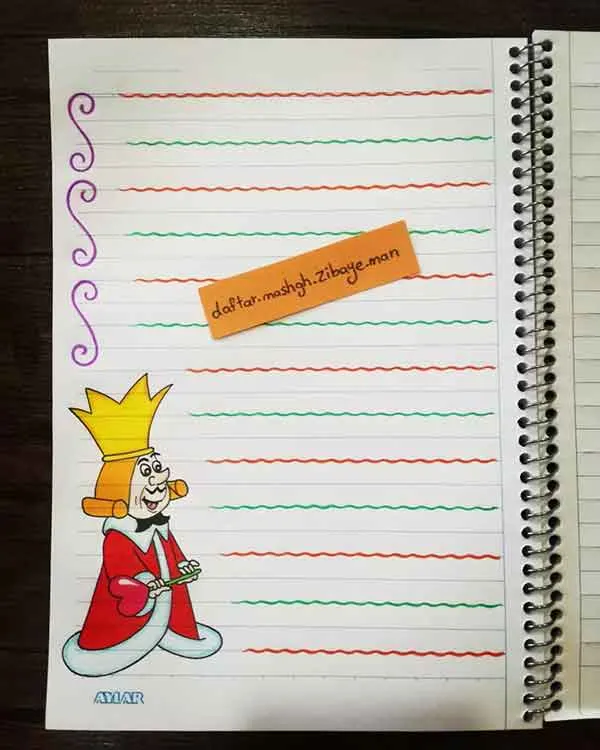 daftar.mashgh.zibaye.man
AYLAR